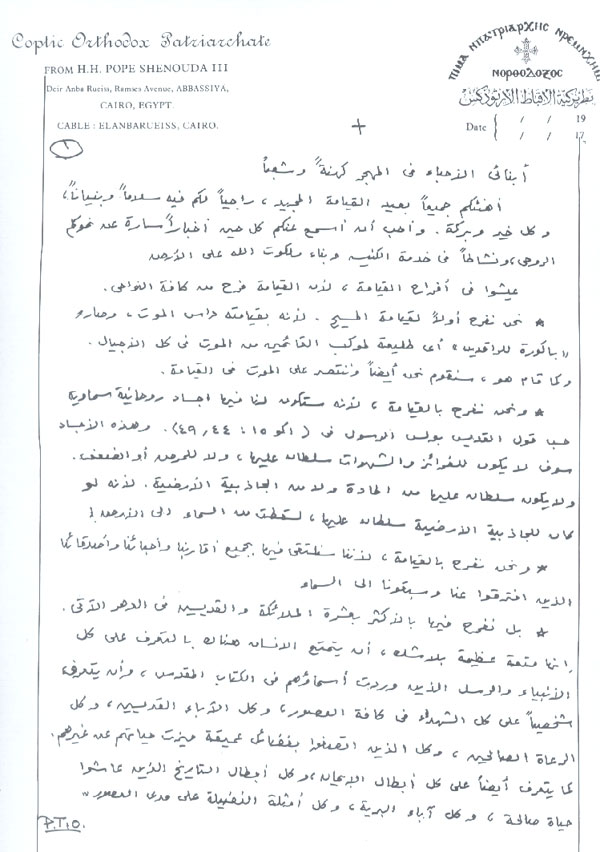 Coptic Orthodox Patriarchate
FROM H.H. POPE SHENOUDA III
Deir Anba Rueiss, Ramses Avenue, ABBASSIYA,
CAIRO, EGYPT.
CABLE : ELANBARUEISS, CAIRO.
بطريركية الأقباط الأرثوذكس
Date { / / 19
/ / 17
١
أبنائى الأحباء فى المهجر كهنةً وشعباً
أهنئكم جميعاً بعيد القيامة المجيد، راجياً لكم فيه سلاماً وبنياناً،
وكل خير وبركة. وأحب أن أسمع عنكم كل حين أخباراً سارة عن نموكم
الروحى، ونشاطاً فى خدمة الكنيسة وبناء ملكوت الله على الأرض
عيشوا فى أفراح القيامة، لأن القيامة فرح من كافة النواحى.
* نحن نفرح أولاً لقيامة المسيح. لأنه بقيامته داس الموت، وصار
"باكورة للراقدين" أى طليعة لموكب القائمين من الموت فى كل الأجيال.
وكما قام هو، سنقوم نحن أيضاً وننتصر على الموت فى القيامة.
* ونحن نفرح بالقيامة، لأنه ستكون لنا فيها أجساد روحانية سماوية
حسب قول القديس بولس الرسول فى (١كو ١٥: ٤٤، ٤٩). وهذه الأجساد
سوف لا يكون للغرائز والشهوات سلطان عليها، ولا للمرض أو الضعف.
ولا يكون سلطان عليها من المادة ولا من الجاذبية الأرضية. لأنه لو
كان للجاذبية الأرضية سلطان عليها، لسقطت من السماء إلى الأرض!
* ونحن نفرح بالقيامة، لأننا سنلتقى فيها بجميع أقاربنا وأحبائنا وأصدقائنا
الذين افترقوا عنا وسبقونا الى السماء
* بل نفرح فيها بالأكثر بعشرة الملائكة والقديسين فى الدهر الآتى.
إنها متعة عظيمة بلا شك، أن يتمتع الانسان هناك بالتعرف على كل
الأنبياء والرسل الذين وردت أسماؤهم فى الكتاب المقدس، وأن يتعرف
شخصياً على كل الشهداء فى كافة العصور، وكل الآباء القديسين، وكل
الرعاة الصالحين، وكل الذين اتصفوا بفضائل عميقة ميزت حياتهم عن غيرهم.
كما يتعرف أيضاً على كل أبطال الإيمان، وكل أبطال التاريخ الذين عاشوا
حياة صالحة، وكل آباء البرية، وكل أمثلة الفضيلة على مدى العصور..
P.T.O.